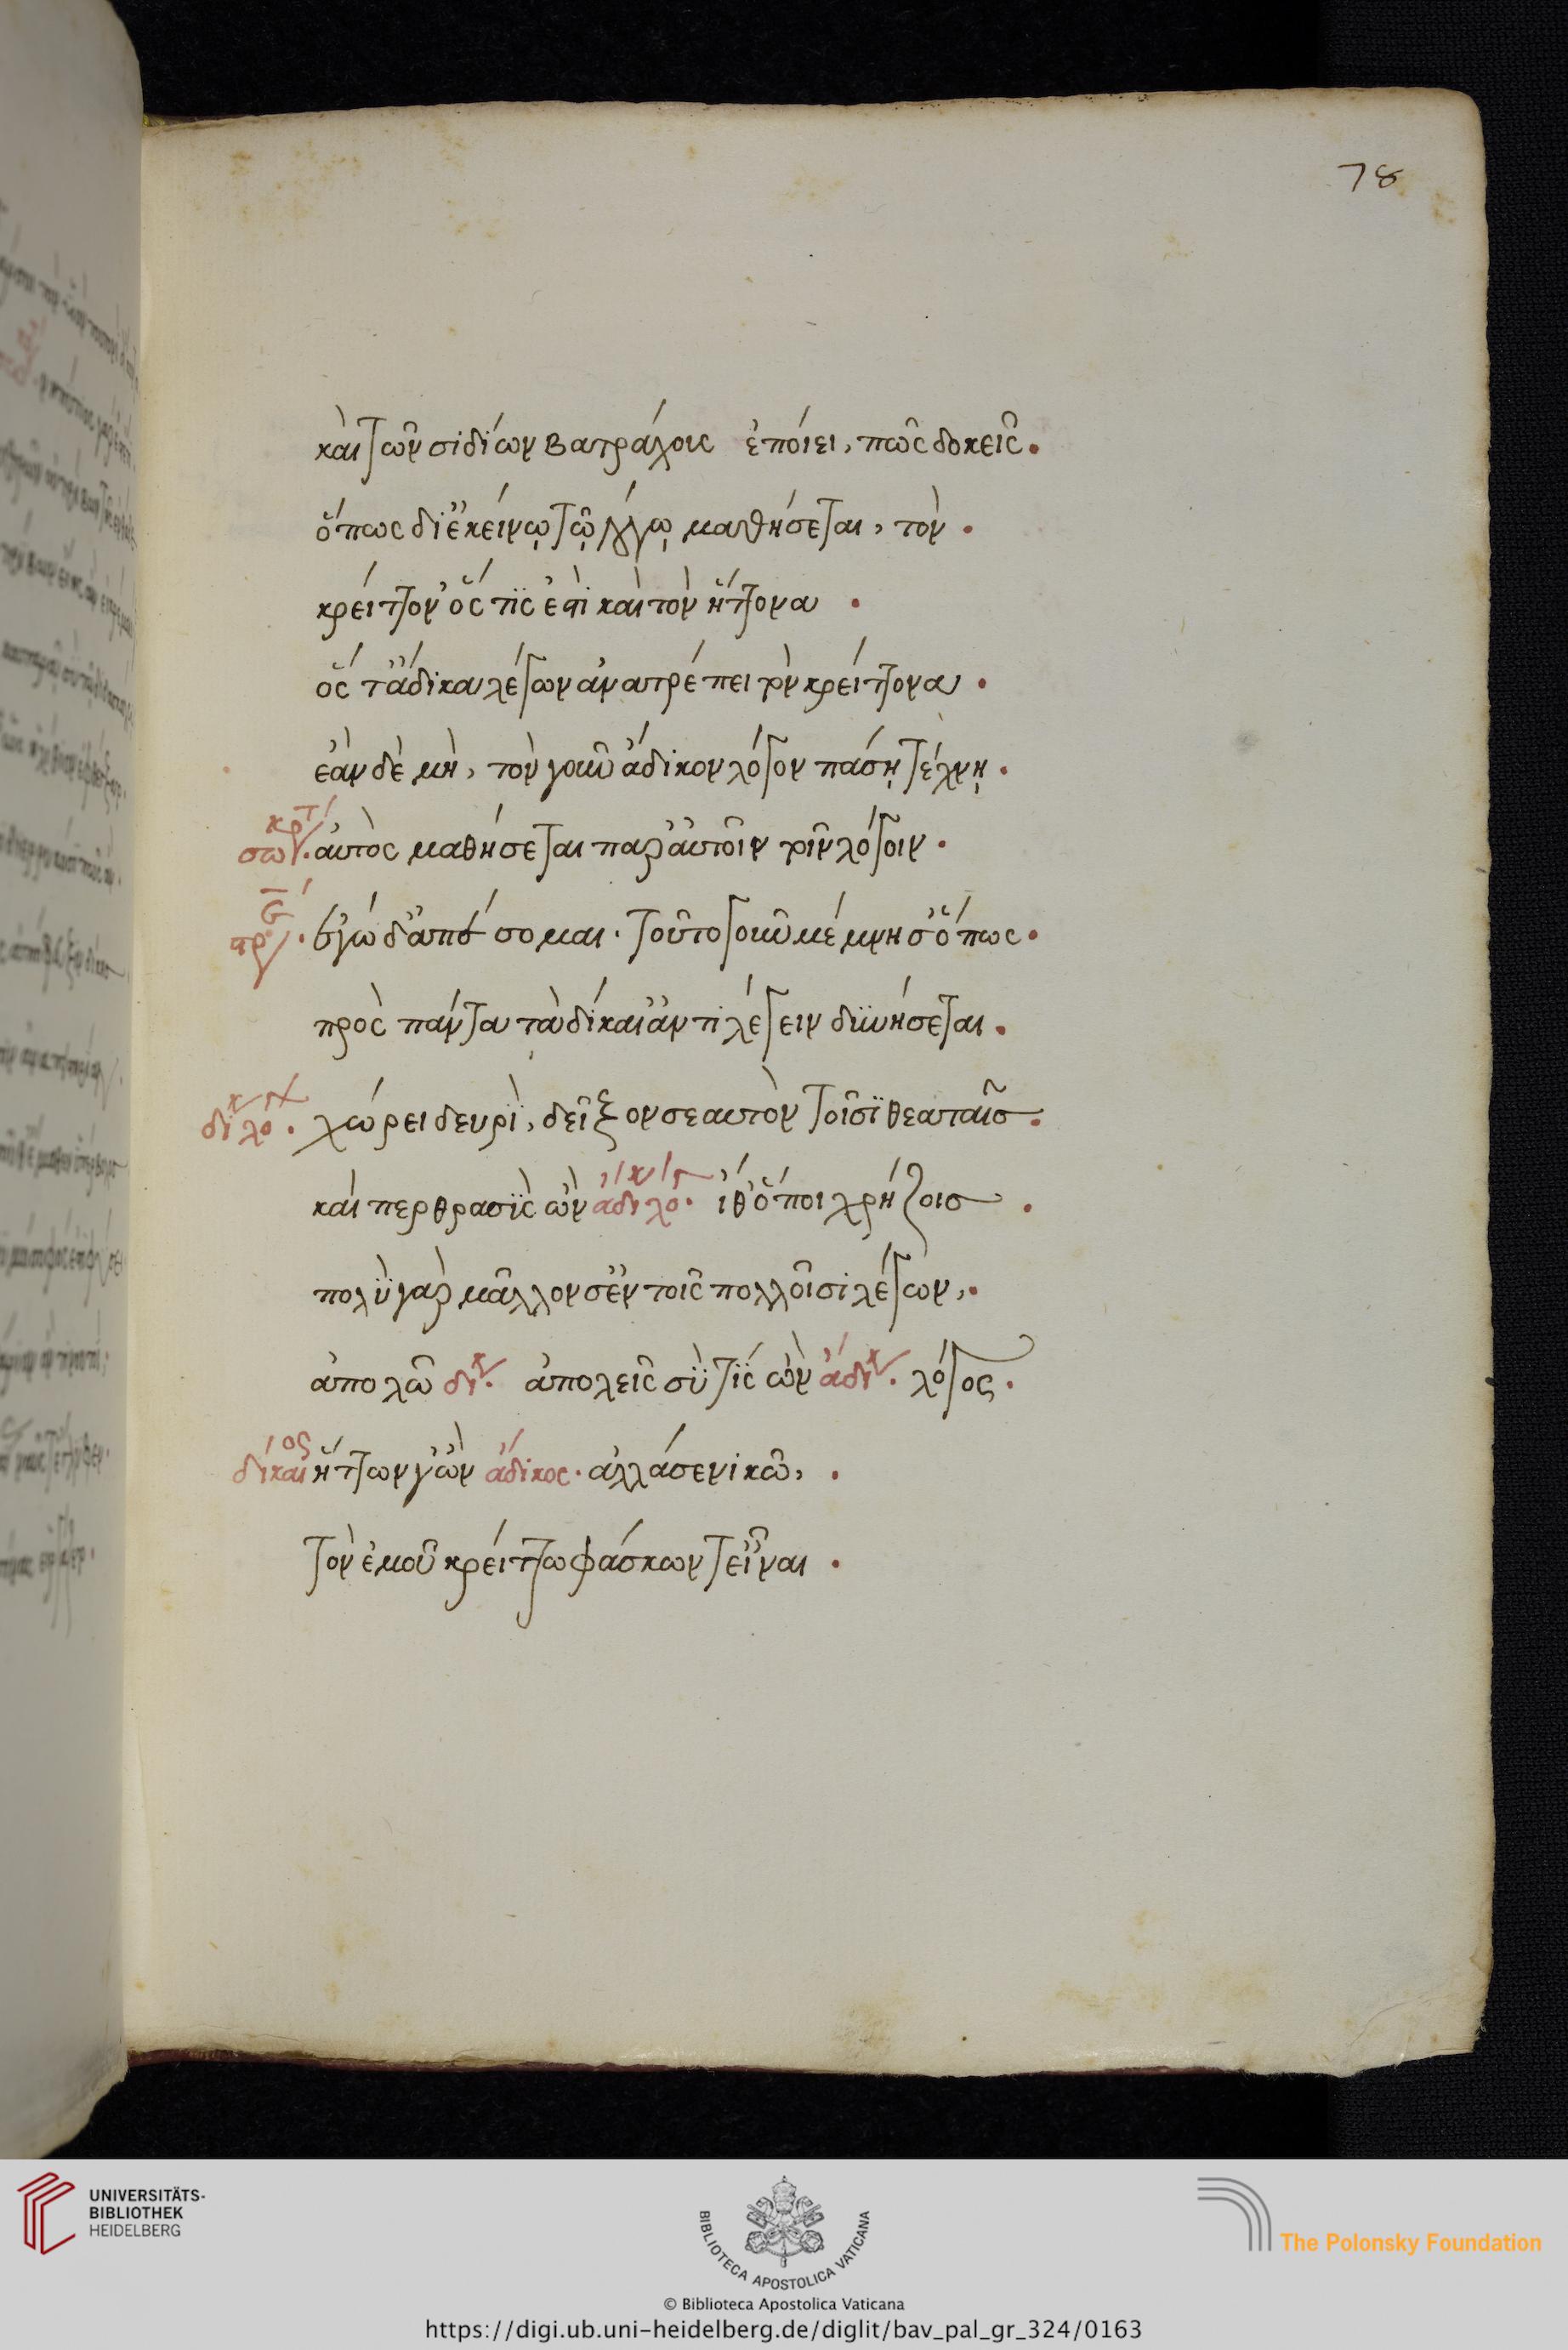 78
καὶ τῶν σιδίων βατράχοις ἐποίει, πῶς δοκεῖς.
ὅπως δ' ἐκείνῳ τῷ λόγῳ μαθήσεται, τὸν.
κρείττον' ὅς τις ἐστὶ καὶ τὸν ἥττονα.
ὅς τἄδικα λέγων ἀνατρέπει τὸν κρείττονα.
ἐὰν δὲ μὴ, τὸν γοῦν ἄδικον λόγον πάσῃ τέχνῃ.
σωκρτ. αὐτὸς μαθήσεται παρ' αὐτοῖν τοῖν λόγοιν.
στρ. ἐγὼ δ' ἀπέσομαι. τοῦτο γοῦν μέμνησ' ὅπως.
πρὸς πάντα τὰ δίκαι' ἀντιλέγειν δυνήσεται.
δικ λογ. χώρει δευρὶ, δεῖξον σεαυτὸν τοῖσι θεαταῖς.
καί περ θρασὺς ὢν ἀδικ λογ. ἴθ' ὅποι χρήζοις.
πολὺ γὰρ μᾶλλον σ' ἐν τοῖς πολλοῖσι λέγων,.
ἀπολῶ δικ. ἀπολεῖς σὺ τίς ὢν ἀδικ. λόγος.
δίκαιος ἥττων γ' ὢν ἄδικος. ἀλλά σε νικῶ,.
τὸν ἐμοῦ κρείττω φάσκοντ' εἶναι.
UNIVERSITÄTS-
BIBLIOTHEK
HEIDELBERG
BIBLIOTECA APOSTOLICA VATICANA
The Polonsky Foundation
© Biblioteca Apostolica Vaticana
https://digi.ub.uni-heidelberg.de/diglit/bav_pal_gr_324/0163